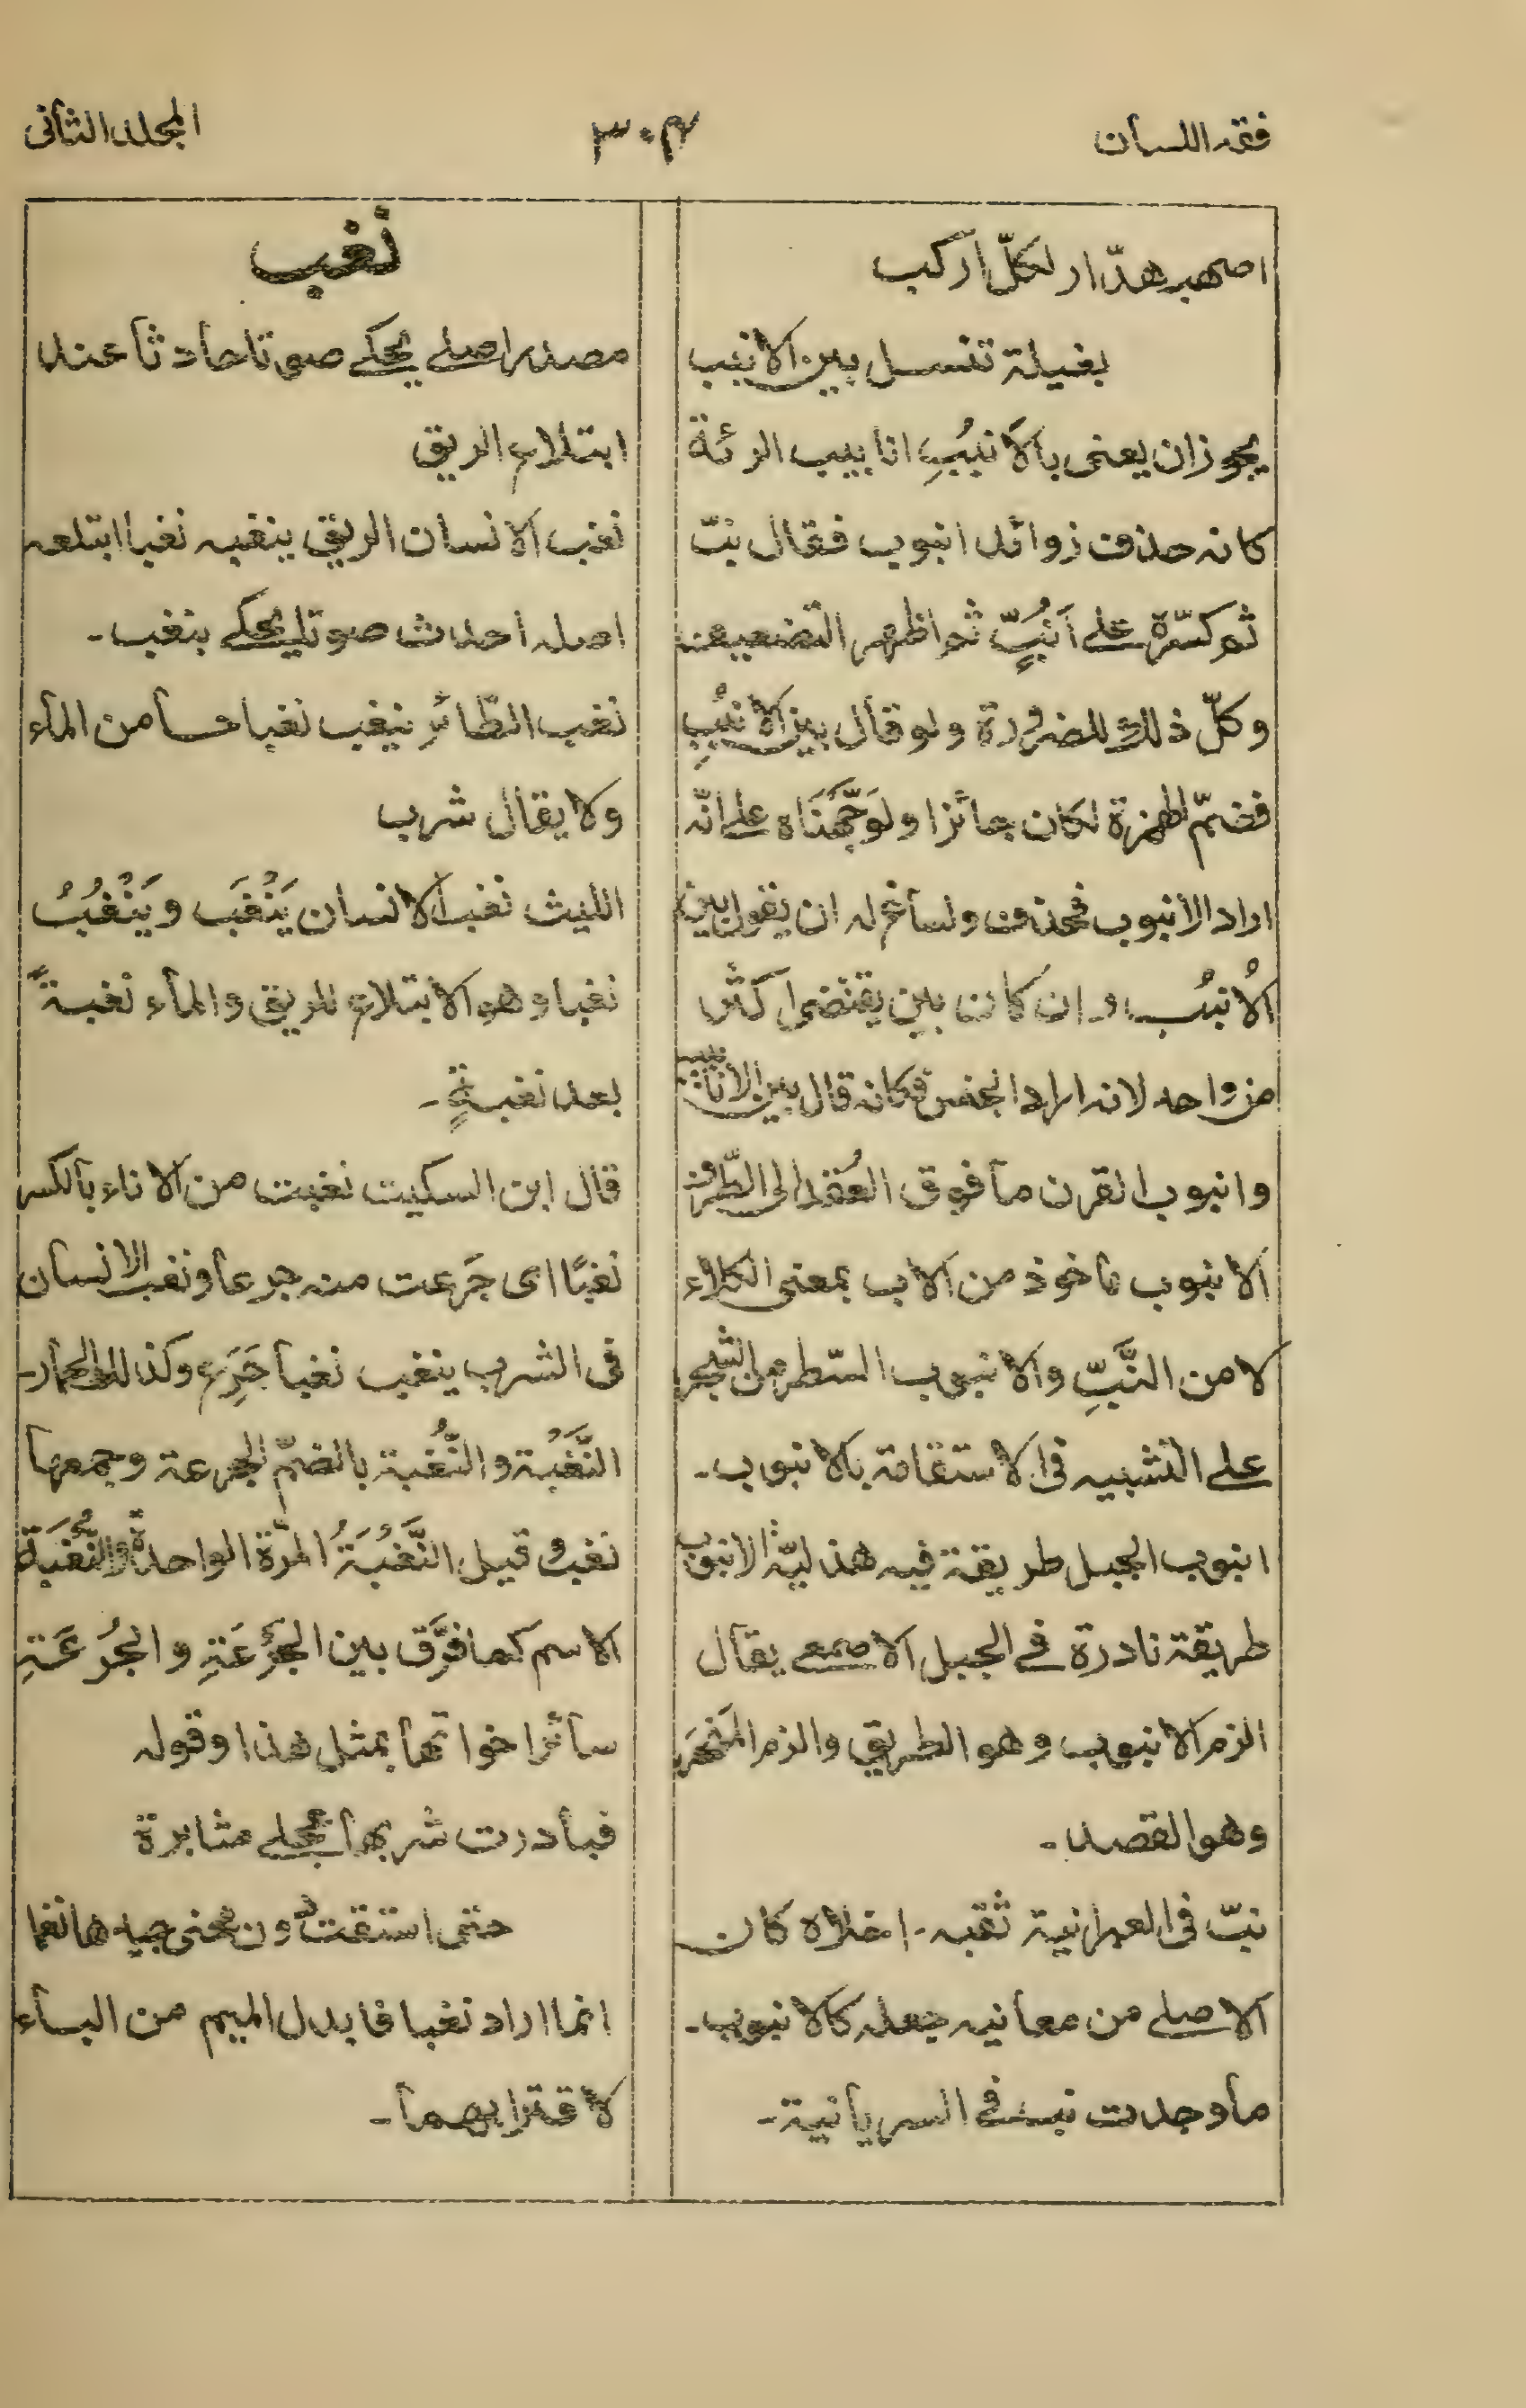 فقہ اللسان
٣٠٤
المجلد الثانی
اصهب هدّار لكلّ اركب
بغيلة تنسل بين الانبب
يجوز ان يعنى بالاَنبُبِ انابيب الرئة
كانه حذف زوائد انبوب فقال نبّ
ثم كسّره على اَنُبٍّ ثم اظهر التضعيف
وكلّ ذلك للضرورة ولو قال بين الاُنبُبِ
فضمّ الهمزة لكان جائزا ولوَجَّهْنَاه على انّه
اراد الانبوب فحذف ولساغ له ان يقول بين
الاُنبُب وان كان بين يقتضى اكثر
من واحد لانه اراد الجنس فكانه قال بين الانابيب
وانبوب القرن ما فوق العُقَد الى الطّرف
الانبوب ماخوذ من الاب بمعنى الكلاء
لا من النَّبِّ والانبوب السّطر من الشجر
على التشبيه فى الاستقامة بالانبوب۔
انبوب الجبل طريقة فيه هذليّة الانبوب
طريقة نادرة فى الجبل الاصمعى يقال
الزم الانبوب وهو الطريق والزم المَنْحَر
وهو القصد۔
نبّ فى العبرانية ثقبه۔ اخلاه كان
الاصلى من معانيه جعله كالانبوب۔
ما وجدت نب فى السريانية۔
نَغب
مصدر اصلى يحكى صوتا حادثا عند
ابتلاع الريق
نغب الانسان الريق ينغبه نغبا ابتلعه
اصله احداث صوت يحكى بنغب۔
نغب الطّائر ينغب نغبا حسا من الماء
ولا يقال شرب
الليث نغب الانسان يَنْغَب ويَنْغُبُ
نغبا وهو الابتلاع للريق والماء نغبةً
بعد نغبةٍ۔
قال ابن السكيت نغبت من الاناء بالكسر
نغبًا اى جَرَعت منه جرعا ونغب الانسان
فى الشرب ينغب نغبا جَرِع وكذلك الحمار۔
النَّغْبَة والنُّغبة بالضمّ الجرعة وجمعها
نغب وقيل النَّغْبَةُ المرّة الواحدة والنُّغْبَة
الاسم كما فُرَّق بين الجَرْعَةِ والجُرعَةِ
سائر اخواتها بمثل هذا وقوله
فبادرت شربها عجلى مثابرة
حتى استقت دون محنى جيدها نغما
انما اراد نغبا فابدل الميم من الباء
لاقترابهما۔